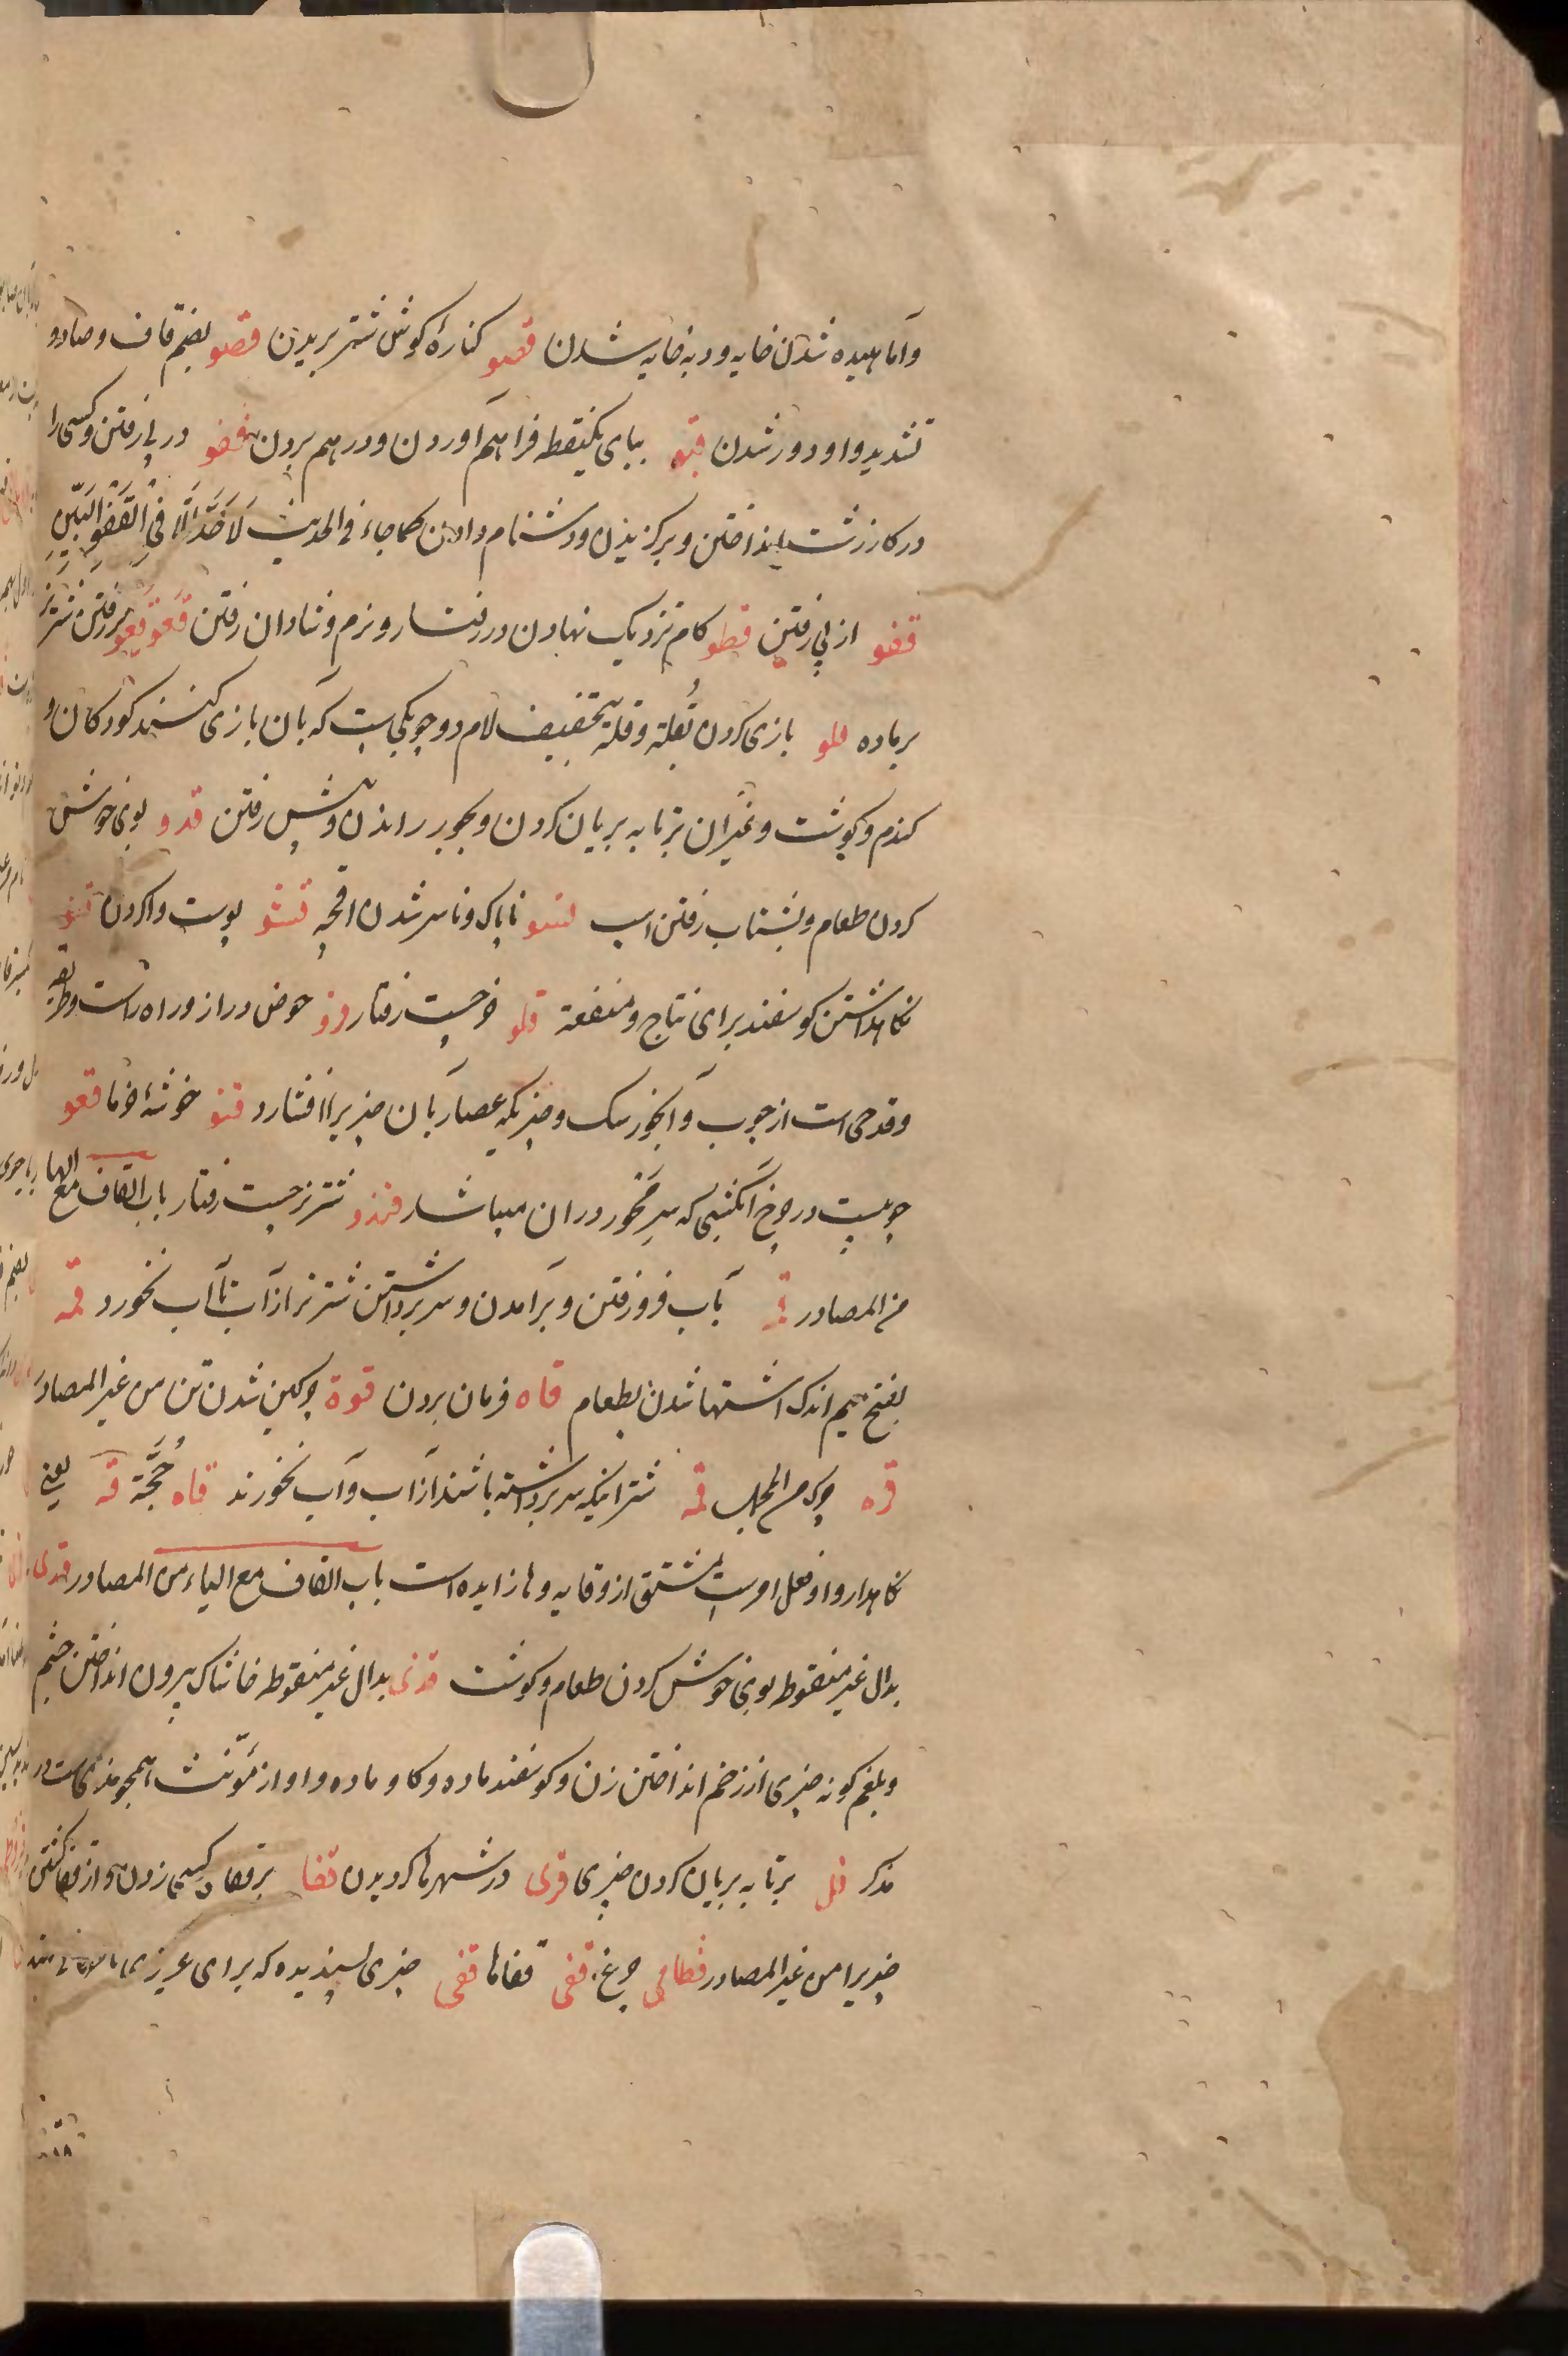 وآماهیده شدن خایه ودبه خایه شدن قصو کنارهٔ کوش شتر بریدن قصو بضم قاف وصاد و
تشدید واو دور شدن قبو ببای یکنقطه فراهم آوردن ودرهم بردن قفو در پی رفتن وکسی را
در کار زشت انداختن وبرکزیدن ودشنام دادن کما جاء فی الحدیث لَا حَدَّ اِلَّا فِی الْقَفْوِ الْبَیِّنِ
قفو از پی رفتن قطو کام نزدیک نهادن در رفتار ونرم وشادان رفتن قعو قعو بررفتن شتر نر
بر ماده قلو بازی کردن بقُلة وقلة بتخفیف لام دو چوبکی است که بآن بازی کنند کودکان و
کندم وکوشت وغیرآن برتابه بریان کردن وبجور راندن و پیش رفتن قدو بوی خوش
کردن طعام وبشتاب رفتن اسب قسو ناپاک وناسره شدن اقچه قشو پوست واکردن قنو
نکاهداشتن کوسفند برای نتاج ومنفعة قلو خر چست رفتار قرو حوض دراز وراه راست وطریقه
وقدحی است از چوب وآبخور سک وچیزیکه عصار بآن چیزیرا افشارد قنو خوشهٔ خرما قعو
چوبیست در چرخ آبکشی که سر محور در آن میباشد قندو شتر نر چست رفتار باب القاف مع الهاء
من المصادر قمه بآب فرو رفتن وبرآمدن وسر برداشتن شتر نر از آب تا آب نخورد قمه
بفتح میم اندک اشتها شدن بطعام قاه فرمان بردن قوة چرکین شدن تن من غیر المصادر
قره چرک من المجلب قمه شترانیکه سر برداشته باشند از آب وآب نخورند قاه حُجَّة قه یعنی
نکاهدار واو فعل امرست مشتق از وقایه وها زایده است باب القاف مع الیاء من المصادر قدی
بدال غیر منقوطه بوی خوش کردن طعام وکوشت قذی بدال غیر منقوطه خاشاک بیرون انداختن چشم
وبلغم کونه چیزی از رحم انداختن زن وکوسفند ماده وکاو ماده واو از مؤنث همچو مذی است در
مذکر قلی برتابه بریان کردن چیزی قری در شهرها کردیدن قفا بر قفاء کسی زدن واز قفا کشتن
چیزیرا من غیر المصادر قطامی چرغ قفی قفاها قفی چیزی پسندیده که برای عزیزی